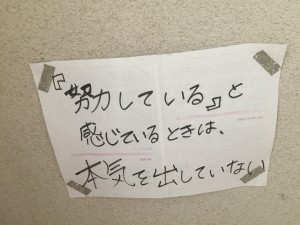 『努力している』と
感じているときは、
本気を出していない